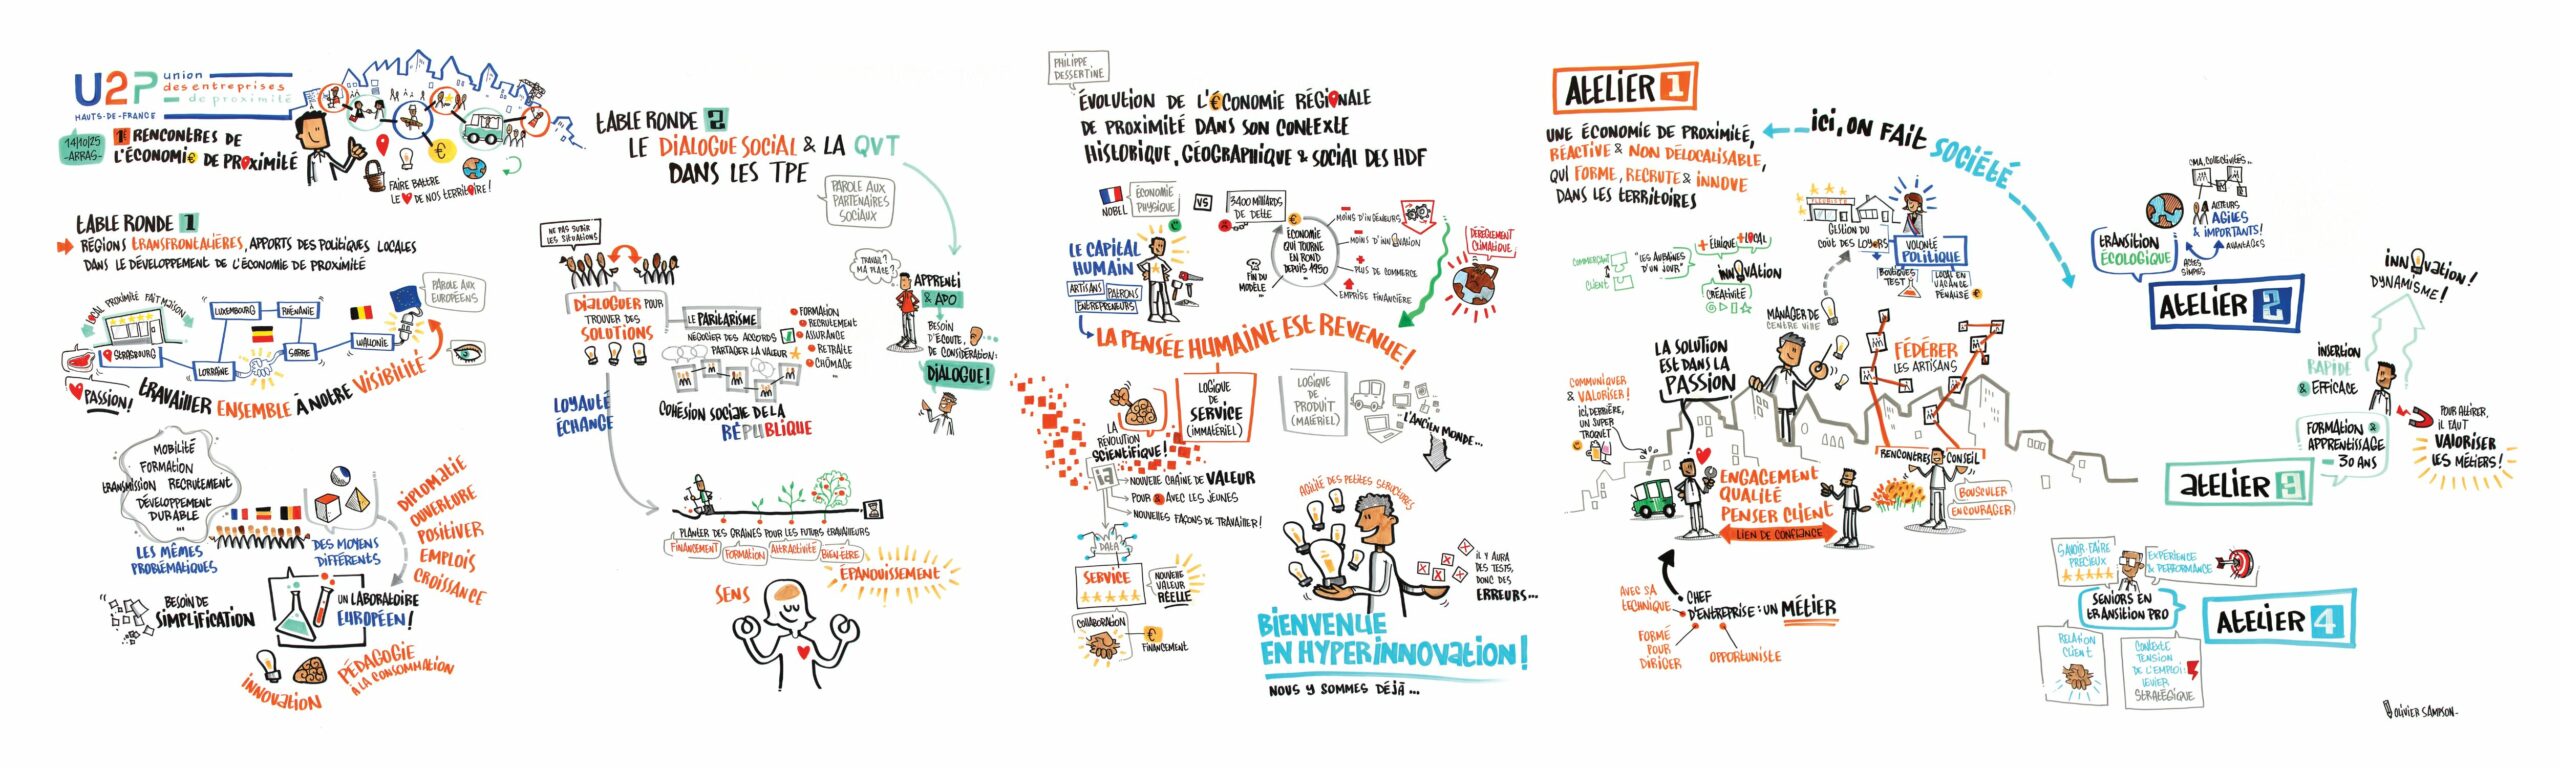 U2P
union
des entreprises
de proximité
HAUTS-DE-FRANCE
14/10/25
-ARRAS-
1ES RENCONTRES DE
L'ÉCONOMI€ DE PROXIMITÉ
FAIRE BATTRE
LE ♥ DE NOS TERRITOIRE!
TABLE RONDE 1
RÉGIONS TRANSFRONTALIÈRES, APPORTS DES POLITIQUES LOCALES
DANS LE DÉVELOPPEMENT DE L'ÉCONOMIE DE PROXIMITÉ
LOCAL PROXIMITÉ FAIT MAISON
STRASBOURG
LUXEMBOURG
RHÉNANIE
LORRAINE
SARRE
WALLONIE
PAROLE AUX
EUROPÉENS
PASSION!
TRAVAILLER ENSEMBLE À NOTRE VISIBILITÉ
MOBILITÉ
FORMATION
TRANSMISSION RECRUTEMENT
DÉVELOPPEMENT
DURABLE
...
LES MÊMES
PROBLÉMATIQUES
DES MOYENS
DIFFÉRENTS
DIPLOMATIE
OUVERTURE
POSITIVER
EMPLOIS
CROISSANCE
BESOIN DE
SIMPLIFICATION
UN LABORATOIRE
EUROPÉEN!
INNOVATION
PÉDAGOGIE
À LA CONSOMMATION
TABLE RONDE 2
LE DIALOGUE SOCIAL & LA QVT
DANS LES TPE
PAROLE AUX
PARTENAIRES
SOCIAUX
NE PAS SUBIR
LES SITUATIONS
DIALOGUER POUR
TROUVER DES
SOLUTIONS
LE PARITARISME
NÉGOCIER DES ACCORDS
PARTAGER LA VALEUR
FORMATION
RECRUTEMENT
ASSURANCE
RETRAITE
CHÔMAGE
...
COHÉSION SOCIALE DE LA
RÉPUBLIQUE
LOYAUTÉ
ÉCHANGE
TRAVAIL?
MA PLACE?
APPRENTI
& ADO
BESOIN
D'ÉCOUTE,
DE CONSIDÉRATION:
DIALOGUE!
PLANTER DES GRAINES POUR LES FUTURS TRAVAILLEURS
FINANCEMENT
FORMATION
ATTRACTIVITÉ
BIEN-ÊTRE
ÉPANOUISSEMENT
SENS
PHILIPPE
DESSERTINE
ÉVOLUTION DE L'€CONOMIE RÉGIONALE
DE PROXIMITÉ DANS SON CONTEXTE
HISTORIQUE, GÉOGRAPHIQUE & SOCIAL DES HDF
NOBEL
ÉCONOMIE
PHYSIQUE
VS
3400 MILLIARDS
DE DETTE
ÉCONOMIE
QUI TOURNE
EN ROND
DEPUIS 1950
...
FIN DU
MODÈLE...
MOINS D'INGÉNIEURS
MOINS D'INNOVATION
PLUS DE COMMERCE
EMPRISE FINANCIÈRE
DÉRÈGLEMENT
CLIMATIQUE
LE CAPITAL
HUMAIN
ARTISANS
PATRONS
ENTREPRENEURS
LA PENSÉE HUMAINE EST REVENUE!
LA
RÉVOLUTION
SCIENTIFIQUE!
LOGIQUE
DE
SERVICE
(IMMATÉRIEL)
LOGIQUE
DE
PRODUIT
(MATÉRIEL)
L'ANCIEN MONDE...
ia
NOUVELLE CHAÎNE DE VALEUR
POUR & AVEC LES JEUNES
NOUVELLES FAÇONS DE TRAVAILLER!
DATA
SERVICE
NOUVELLE
VALEUR
RÉELLE
COLLABORATION
FINANCEMENT
AGILITÉ DES PETITES STRUCTURES
IL Y AURA
DES TESTS,
DONC DES
ERREURS...
BIENVENUE
EN HYPERINNOVATION!
NOUS Y SOMMES DÉJÀ...
ATELIER 1
UNE ÉCONOMIE DE PROXIMITÉ,
RÉACTIVE & NON DÉLOCALISABLE,
QUI FORME, RECRUTE & INNOVE
DANS LES TERRITOIRES
ICI, ON FAIT SOCIÉTÉ
COMMERÇANT
CLIENT
"LES AUBAINES
D'UN JOUR"
+ ÉTHIQUE + LOCAL
INNOVATION
CRÉATIVITÉ
FLEURISTE
GESTION DU
COÛT DES LOYERS
VOLONTÉ
POLITIQUE
BOUTIQUES
TEST
LOCAL EN
VACANCE
PÉNALISÉ
MANAGER DE
CENTRE VILLE
LA SOLUTION
EST DANS LA
PASSION
FÉDÉRER
LES ARTISANS
COMMUNIQUER
& VALORISER!
ICI, DERRIÈRE,
UN SUPER
TROQUET
ENGAGEMENT
QUALITÉ
PENSER CLIENT
LIEN DE CONFIANCE
RENCONTRES
CONSEIL
BOUSCULER
ENCOURAGER!
CHEF
D'ENTREPRISE: UN MÉTIER
AVEC SA
TECHNIQUE
FORMÉ
POUR
DIRIGER
OPPORTUNISTE
CMA, COLLECTIVITÉS...
ACTEURS
AGILES
& IMPORTANTS!
AVANTAGES
ACTES
SIMPLES
TRANSITION
ÉCOLOGIQUE
ATELIER 2
INNOVATION!
DYNAMISME!
INSERTION
RAPIDE
& EFFICACE
POUR ATTIRER,
IL FAUT
VALORISER
LES MÉTIERS!
FORMATION &
APPRENTISSAGE
-30 ANS
ATELIER 3
SAVOIR-FAIRE
PRÉCIEUX
EXPÉRIENCE
& PERFORMANCE
SENIORS EN
TRANSITION PRO
ATELIER 4
RELATION
CLIENT
CONTEXTE
TENSION
DE L'EMPLOI:
LEVIER
STRATÉGIQUE
OLIVIER SAMPSON-